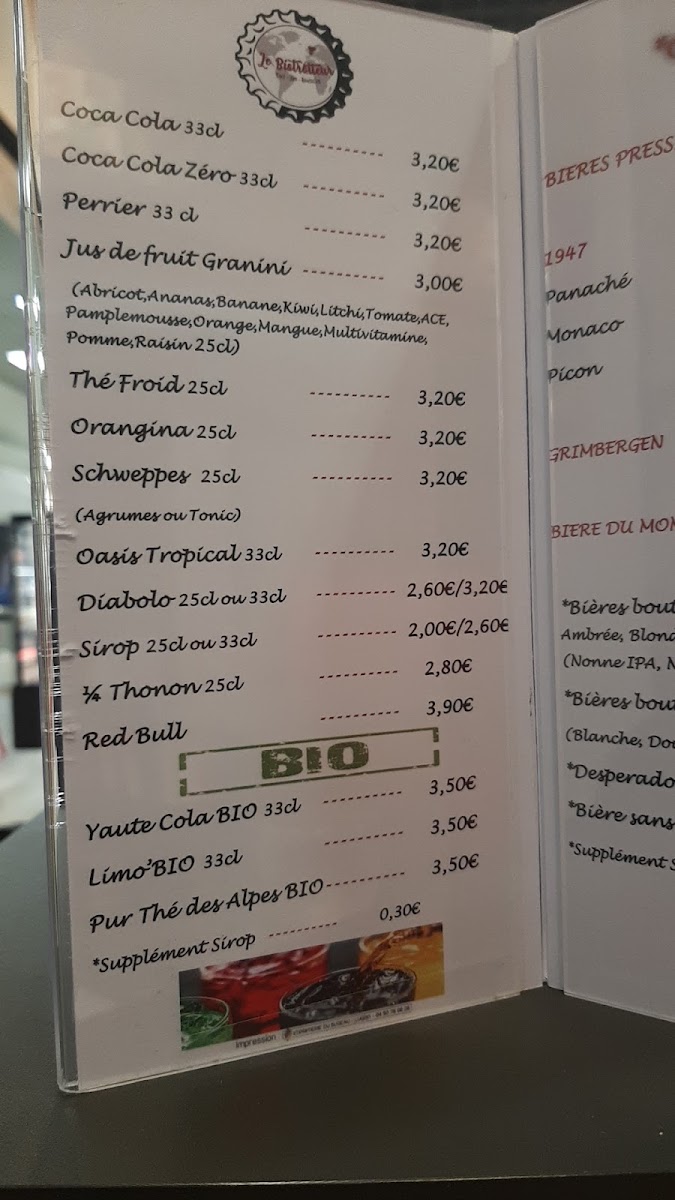 Le Bistrotteur
Coca Cola 33cl ---------- 3,20€
Coca Cola Zéro 33cl ---------- 3,20€
Perrier 33 cl ---------- 3,20€
Jus de fruit Granini ---------- 3,00€
(Abricot,Ananas,Banane,Kiwi,Litchi,Tomate,ACE,
Pamplemousse,Orange,Mangue,Multivitamine,
Pomme,Raisin 25cl)
Thé Froid 25cl ---------- 3,20€
Orangina 25cl ---------- 3,20€
Schweppes 25cl ---------- 3,20€
(Agrumes ou Tonic)
Oasis Tropical 33cl ---------- 3,20€
Diabolo 25cl ou 33cl ---------- 2,60€/3,20€
Sirop 25cl ou 33cl ---------- 2,00€/2,60€
¼ Thonon 25cl ---------- 2,80€
Red Bull ---------- 3,90€
BIO
Yaute Cola BIO 33cl ---------- 3,50€
Limo'BIO 33cl ---------- 3,50€
Pur Thé des Alpes BIO ---------- 3,50€
*Supplément Sirop ---------- 0,30€
Impression
BIERES PRESS
1947
Panaché
Monaco
Picon
GRIMBERGEN
BIERE DU MON
*Bières bout
Ambrée, Blond
(Nonne IPA, N
*Bières bou
(Blanche, Do
*Desperado
*Bière sans
*Supplément S